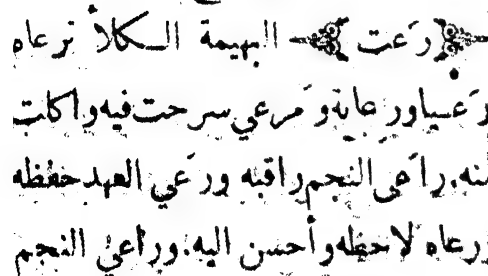 رَعت البهيمة الكلأ ترعاه
رَعيا ورعاية ومَرعي سرحت فيه واكلت
منه. راعى النجم راقبه ورَعي العهد حفظه
ورعاه لاحظه وأحسن اليه. وراعي النجم